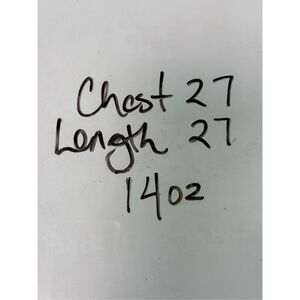 Chest 27
Length 27
14oz